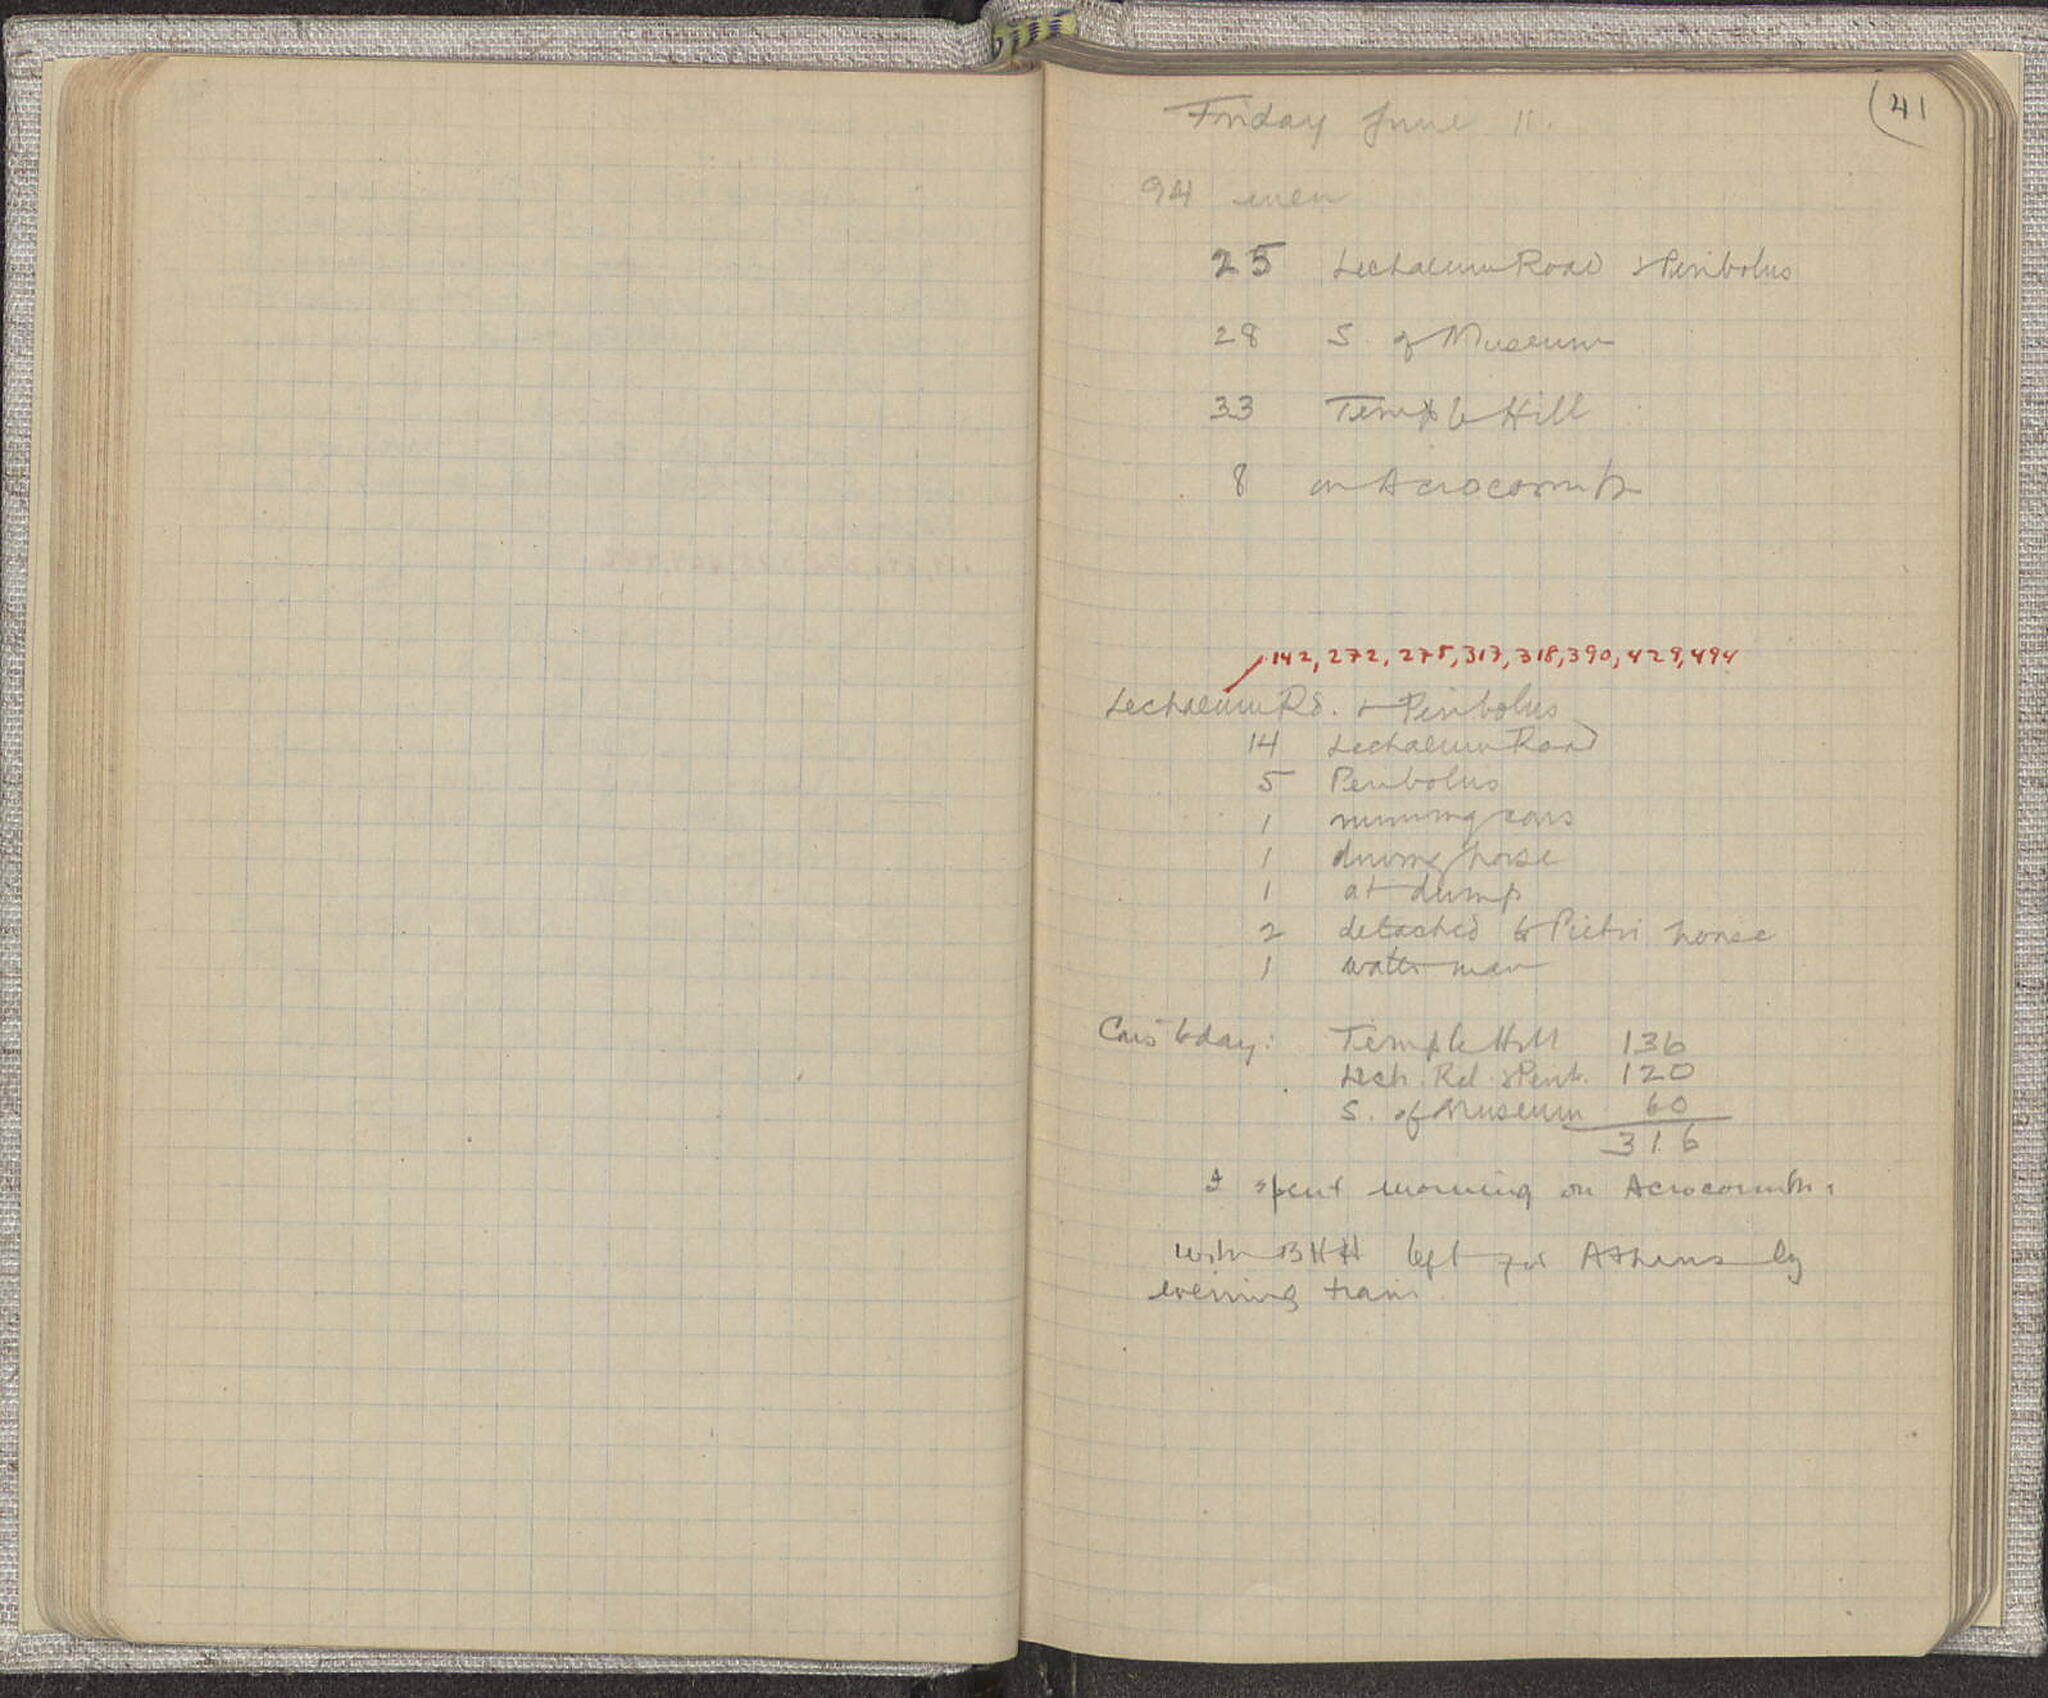 41
Friday June 11.
94 men
25 Lechaeum Road & Peribolus
28 S. of Museum
33 Temple Hill
8 on Acrocorinth
142, 272, 275, 317, 318, 390, 429, 494
Lechaeum Rd. & Peribolus
14 Lechaeum Road
5 Peribolus
1 running cars
1 driving horse
1 at dump
2 detached to Pietri house
1 water man
Cars today: Temple Hill 136
Lech. Rd. & Perib. 120
S. of Museum 60
316
I spent morning on Acrocorinth.
with BHH left for Athens by
evening train.